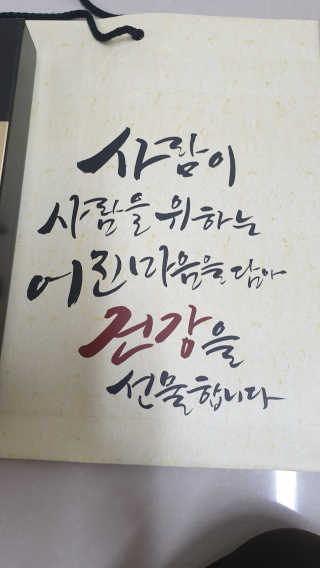 사람이
사람을 위하는
어진마음을 담아
건강을
선물합니다